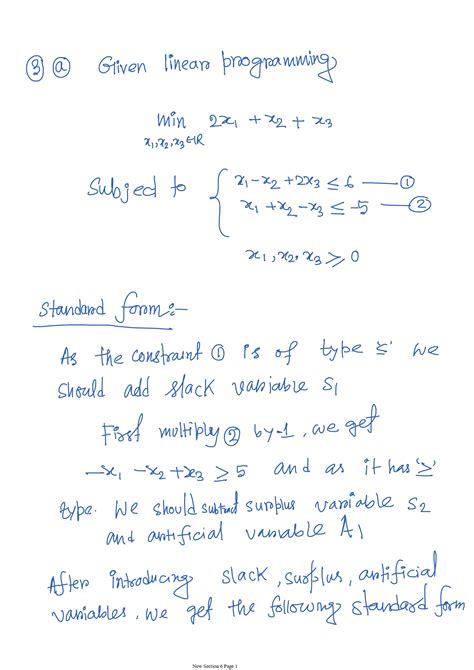 ③ ⓐ Given linear programming
min 2x₁ + x₂ + x₃
x₁,x₂,x₃∈ℝ
Subject to { x₁ - x₂ + 2x₃ ≤ 6 —— ①
x₁ + x₂ - x₃ ≤ -5 —— ②
x₁, x₂, x₃ ≥ 0
Standard form:-
As the constraint ① is of type '≤' we
should add slack variable s₁
First multiply ② by -1, we get
-x₁ - x₂ + x₃ ≥ 5 and as it has '≥'
type. We should subtract surplus variable s₂
and artificial variable A₁
After introducing slack, surplus, artificial
variables, we get the following standard form
New Section 6 Page 1